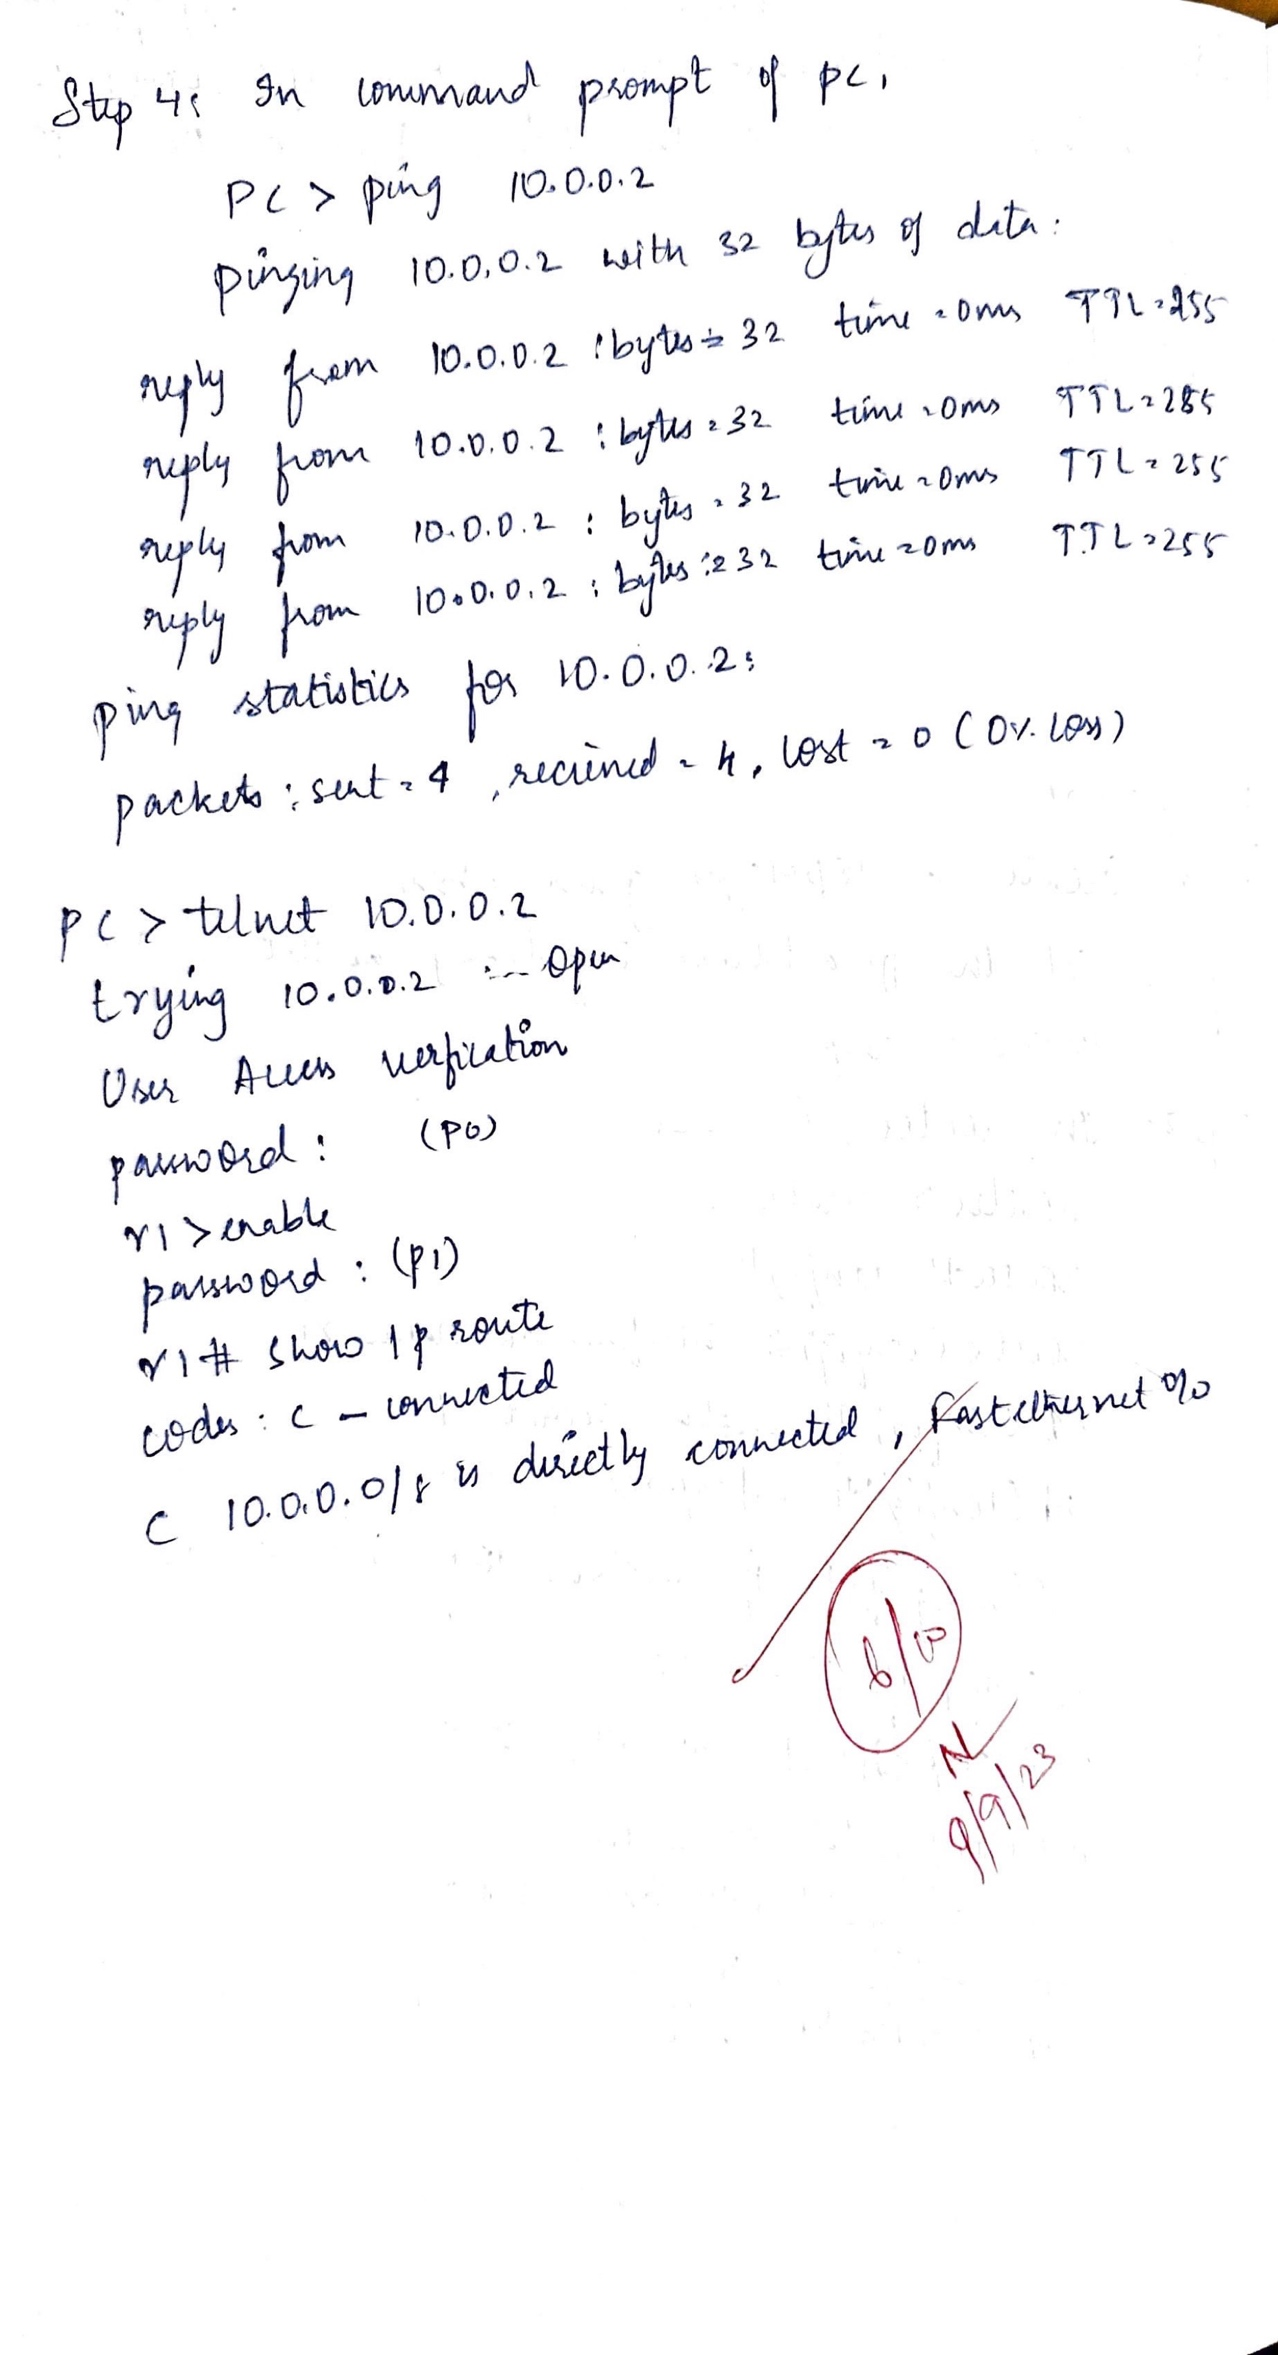 Step 4: In command prompt of PC,
PC > ping 10.0.0.2
pinging 10.0.0.2 with 32 bytes of data:
reply from 10.0.0.2 : bytes = 32 time = 0ms TTL = 255
reply from 10.0.0.2 : bytes = 32 time = 0ms TTL = 255
reply from 10.0.0.2 : bytes = 32 time = 0ms TTL = 255
reply from 10.0.0.2 : bytes = 32 time = 0ms TTL = 255
ping statistics for 10.0.0.2:
packets : sent = 4, recieved = 4, lost = 0 (0% loss)
PC > telnet 10.0.0.2
trying 10.0.0.2 :-- Open
User Access verfication
password : (P0)
r1 > enable
password : (P1)
r1 # show ip route
codes : C – connected
C 10.0.0.0/8 is directly connected, Fastethernet 0/0
6/10
N
9/9/23